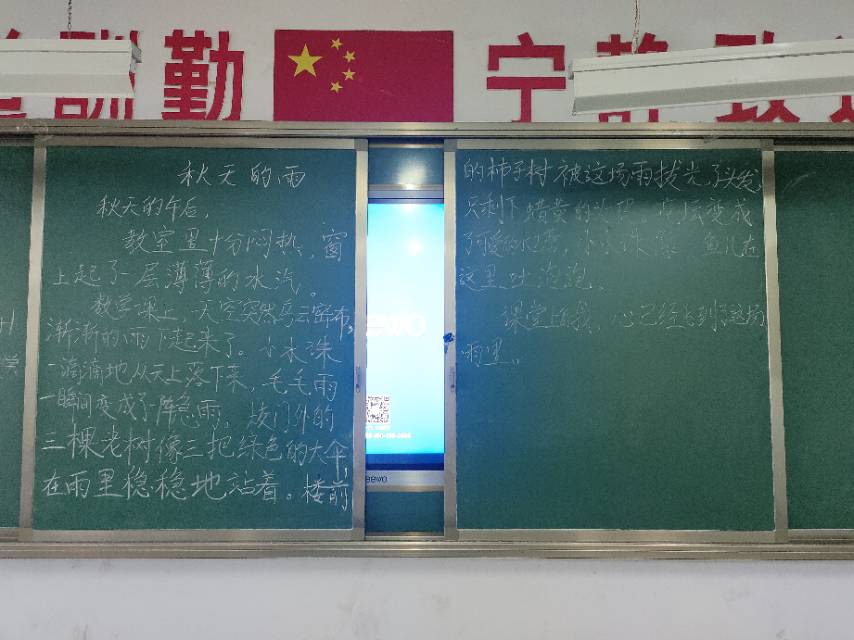 酬勤
宁静致
秋天的雨
秋天的午后,
教室里十分闷热,窗
上起了一层薄薄的水汽。
数学课上,天空突然乌云密布,
渐渐的雨下起来了。小水珠
一滴滴地从天上落下来,毛毛雨
一瞬间变成了一阵急雨,校门外的
三棵老树像三把绿色的大伞,
在雨里稳稳地站着。楼前
的柿子树被这场雨拔光了头发,
只剩下蜡黄的
变成
了可爱的水, 小小珠 鱼儿在
这里吐泡泡,
课堂上的我,心已经飞到了这场
雨里。
学
ewo
seewo